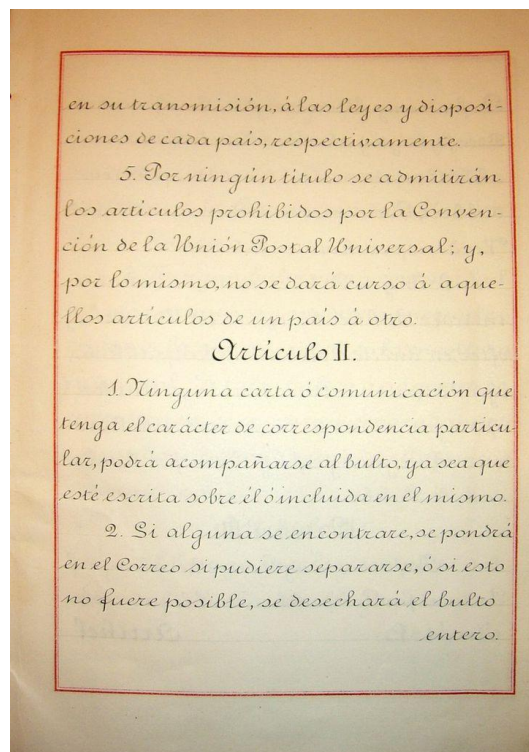 en su transmisión, á las leyes y disposi-
ciones de cada país, respectivamente.
5. Por ningún titulo se admitirán
los artículos prohibidos por la Conven-
ción de la Unión Postal Universal; y,
por lo mismo, no se dará curso á aque-
llos artículos de un país á otro.
Artículo II.
1. Ninguna carta ó comunicación que
tenga el carácter de correspondencia particu
lar, podrá acompañarse al bulto, ya sea que
esté escrita sobre él ó incluida en el mismo.
2. Si alguna se encontrare, se pondrá
en el Correo si pudiere separarse, ó si esto
no fuere posible, se desechará el bulto
entero.